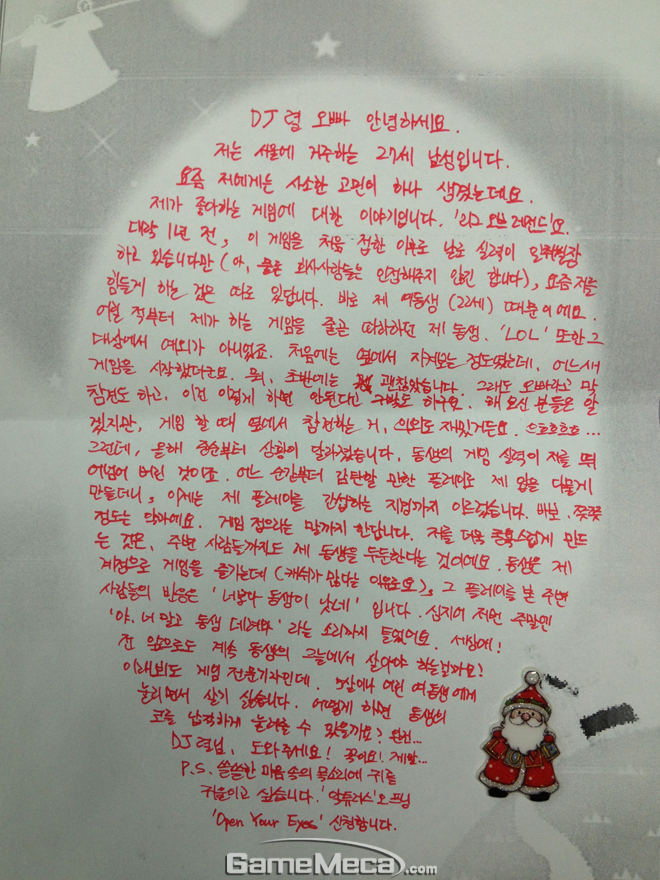 DJ 렴 오빠 안녕하세요.
저는 서울에 거주하는 27세 남성입니다.
요즘 저에게는 사소한 고민이 하나 생겼는데요.
제가 좋아하는 게임에 대한 이야기입니다. '리그 오브 레전드'요.
대략 1년 전, 이 게임을 처음 접한 이후로 날로 실력이 일취월장
하고 있습니다만 (아, 물론 회사사람들은 인정해주지 않긴 합니다), 요즘 저를
힘들게 하는 것은 따로 있답니다. 바로 제 여동생 (22세) 때문이에요.
어릴 적부터 제가 하는 게임을 줄곧 따라하던 제 동생. 'LOL' 또한 그
대상에서 예외가 아니었죠. 처음에는 옆에서 지켜보는 정도였는데, 어느새
게임을 시작했더군요. 뭐, 초반에는 괜찮았습니다. 그래도 오빠라고 말
참견도 하고, 이건 이렇게 하면 안된다고 구박도 하구요. 해 보신 분들은 알
겠지만, 게임 할 때 옆에서 참견하는 거, 의외로 재밌거든요. 으흐흐흐흐...
그런데, 올해 중순부터 상황이 달라졌습니다. 동생의 게임 실력이 저를 뛰
어넘어 버린 것이죠. 어느 순간부터 감탄할 만한 플레이로 제 입을 다물게
만들더니, 이제는 제 플레이를 간섭하는 지경까지 이르렀습니다. 바보. 쯧쯧
정도는 약과예요. 게임 접으라는 말까지 한답니다. 저를 더욱 곤혹스럽게 만드
는 것은, 주변 사람들까지도 제 동생을 두둔한다는 것이에요. 동생은 제
계정으로 게임을 즐기는데 (캐쉬가 많다는 이유로요), 그 플레이를 본 주변
사람들의 반응은 '너보다 동생이 낫네' 입니다. 심지어 저번 주말엔
'야. 너 말고 동생 데려와' 라는 소리까지 들었어요. 세상에!
전 앞으로도 계속 동생의 그늘에서 살아야 하는걸까요?
이래뵈도 게임 전문기자인데. 5살이나 어린 여동생에게
눌리면서 살기 싫습니다. 어떻게 하면 동생의
코를 납작하게 눌러줄 수 있을까요?
DJ 렴님, 도와주세요! 꽁이요! 제발...
P.S. 쓸쓸한 마음 속의 목소리에 귀를
귀울이고 싶습니다. '악튜러스' 오프닝
'Open Your Eyes' 신청합니다.
GameMeca.com